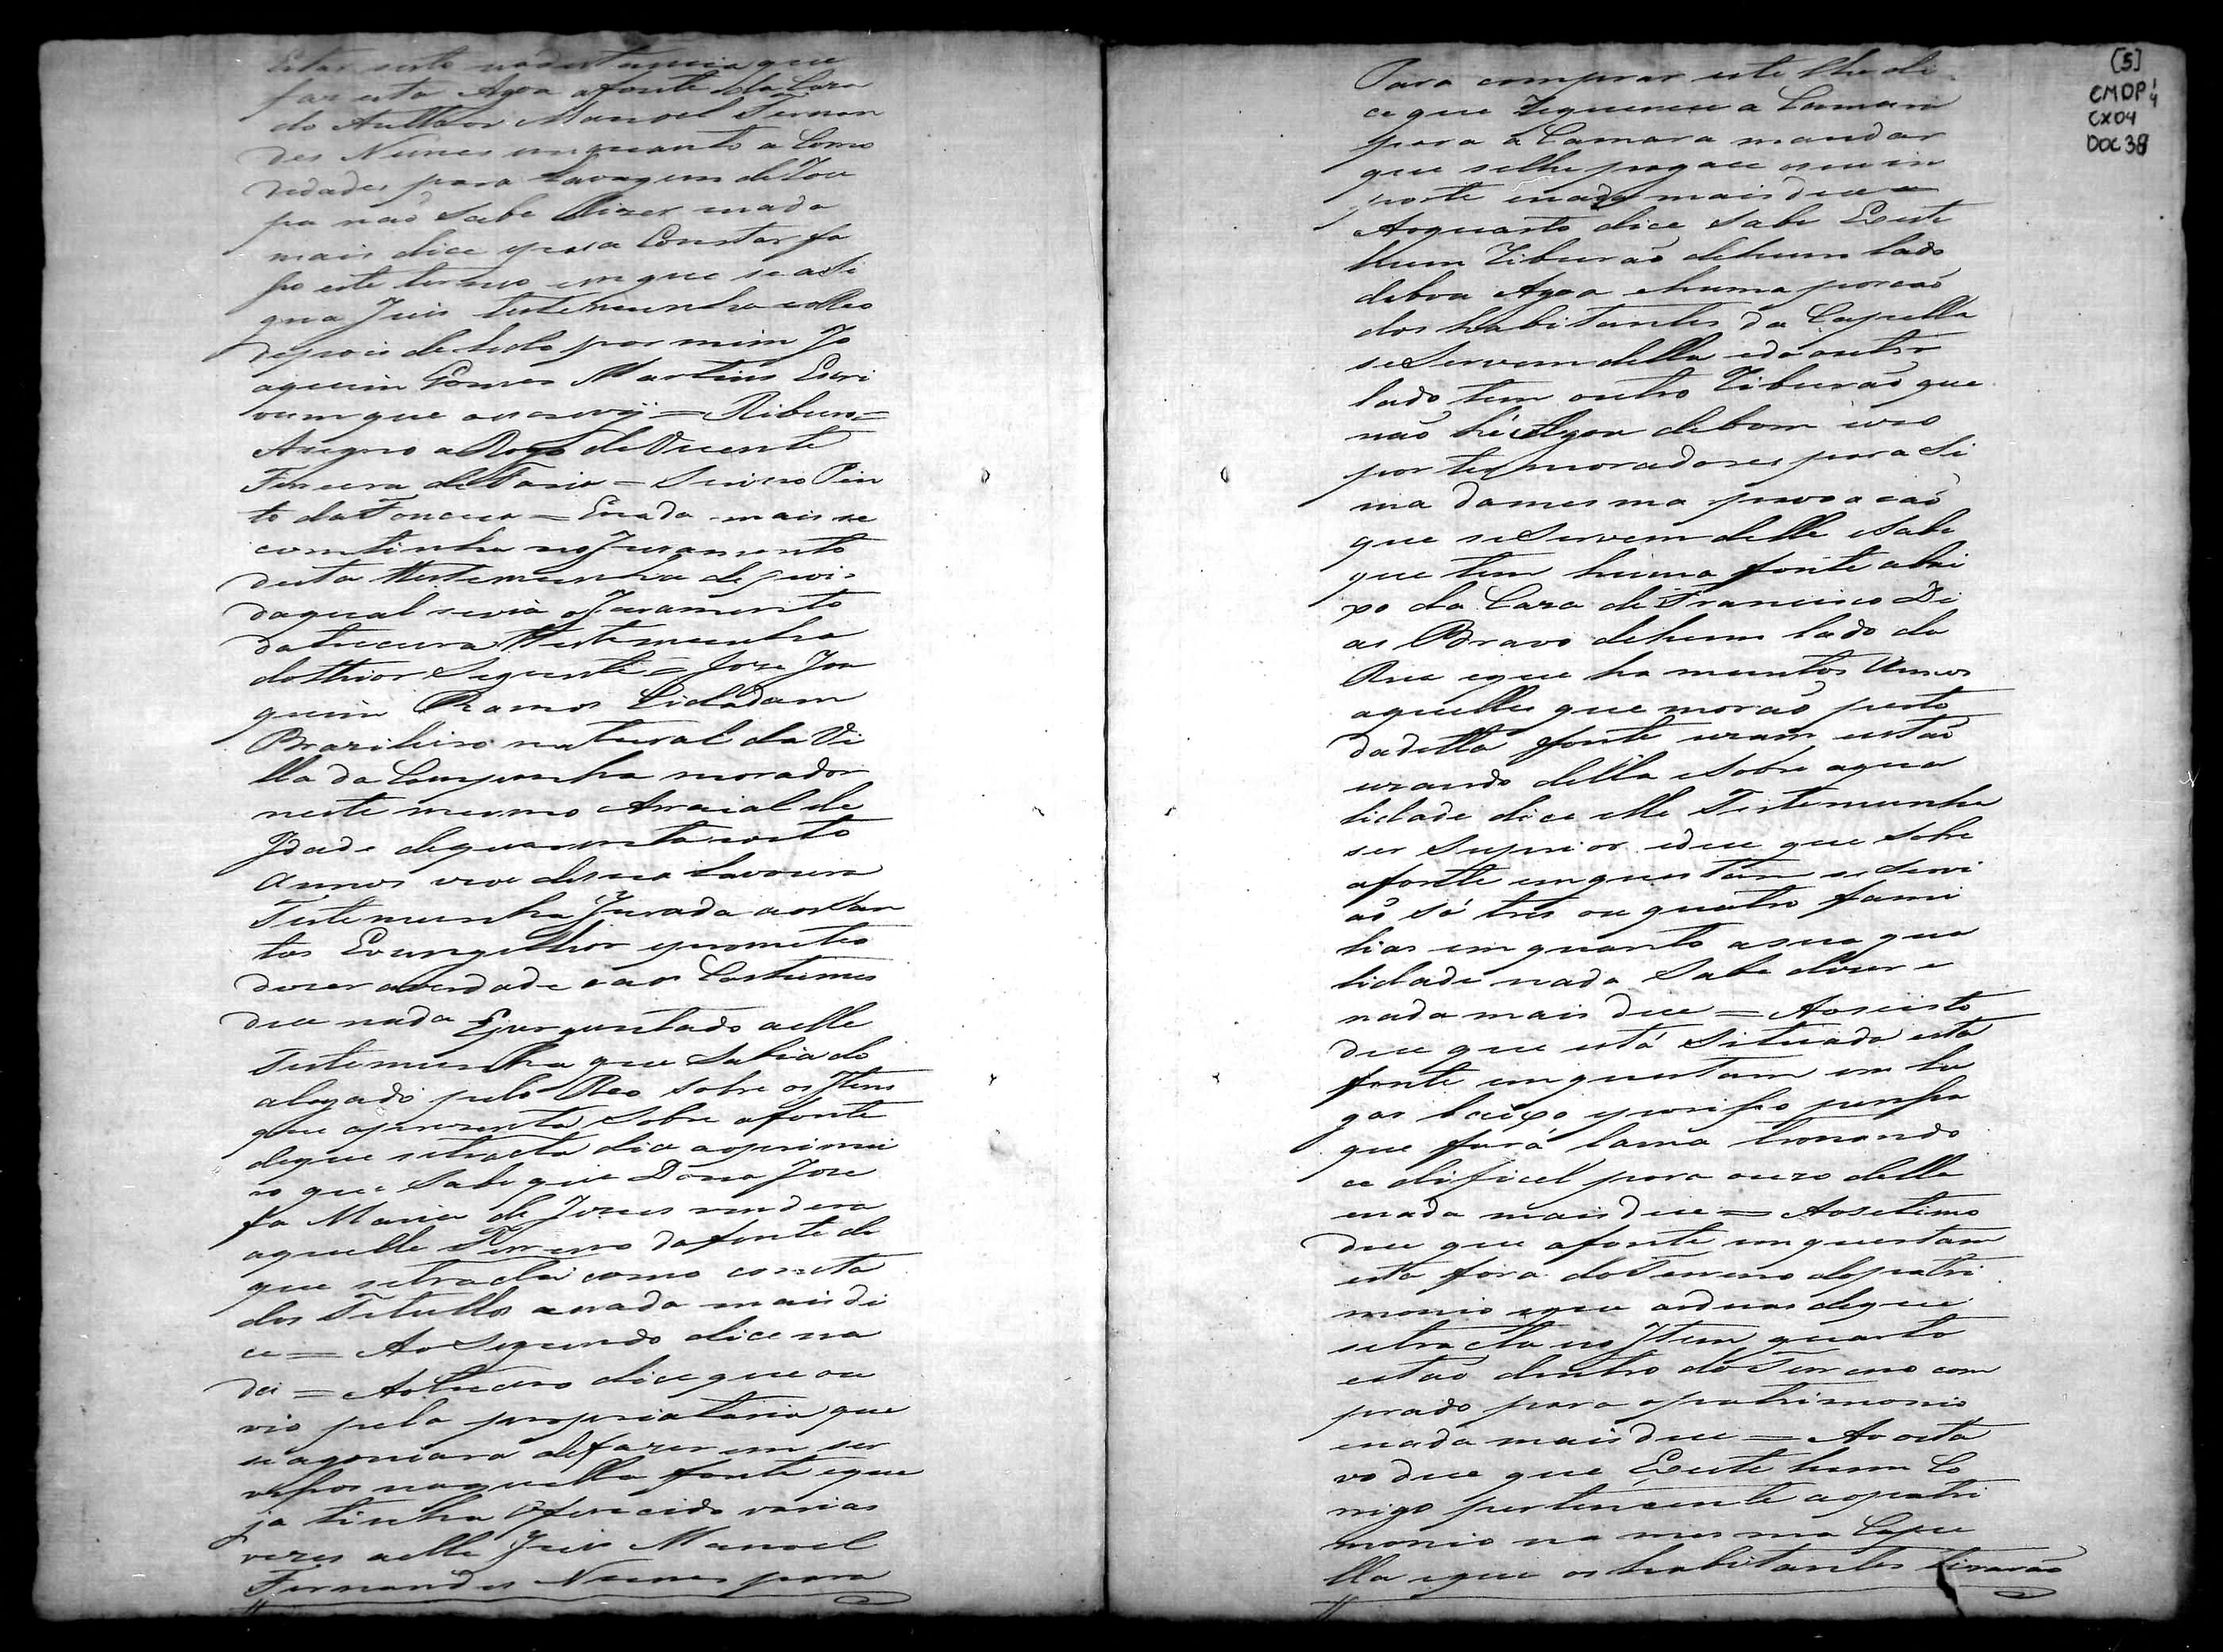 faz esta Agoa afonte da Caza
do Auttor Manoel Fernan
des Nunes emquanto a Como
didades para Lavagem de Rou
pa não Sabe dizer nada
mais dice epara Constar fa
ço este termo em que se asi
gna Juis testemunha
depois de lido por mim Jo
aquim Gomes Martins Escri
vam que oescrevÿ = Ribeiro =
Asigno aRogo de Vicente
Ferreira de Faria = Pin
to da Fonceca = Enada mais se
continha no Juramento
desta ttestemunha depois
daqual sevia oJuramento
daterceira ttestemunha
dotthior Seguinte = Joze Joa
quim Ramos Cidadam
Brazileiro natural da Vi
lla da Campanha morador
neste mesmo Arraial de
Jdade dequarenta eoito
Annos vive desua Lavoura
Testemunha Jurada aosSan
tos Evangelhos eprometeo
dizer averdade eaos Costumes
dice nada Eperguntado aelle
Testemunha que Sabia do
alegado pelo Reo Sobre os Jtens
que aprezenta Sobre afonte
deque setracta dice aoprimei
ro que Sabe que Dona Joze
fa Maria de Jezus vendera
aquelle Terreno dafonte de
que setracta como consta
dos Titullos enada mais di
ce = Ao Segundo dice na
da = Aoterceiro dice que ou
vio pela propriataria que
seagoniara defazerem ser
viços naquella fonte eque
ja tinha Oferecido varias
vezes aelle Juis Manoel
Fernandes Nunes para
Para comprar este lhe di
ce que Requeresse a Camara
para a Camara mandar
que selhe pagace oseu im
porte enada mais dice =
Aoquarto dice Sabe Existe
hum Riberão dehum lado
deboa Agoa ehuma porcão
dos habitantes da Capella
seServem della edooutro
lado tem outro Riberão que
não hé Agoa debom uzo
por ter moradores para Si
ma damesma povoacão
que seServem delle eSabe
que tem huma fonte abai
xo da Caza de Francisco Di
as Bravo dehum lado da
Rua eque ha muntos Annos
aquelles que morão perto
dadetta fonte uzam eestão
uzando della eSobre aqua
lidade dice elle Testemunha
ser Superior edice que Sobre
afonte emquestam seServi
ão só tres ou quatro fami
lias emquanto asua qua
lidade nada Sabe dizer e
nada mais dice = Aoseisto
dice que está Situada esta
fonte emquestam em lu
gar baixo eporisso pensa
que fará lama tornando
ce dificel para ouzo della
enada mais dice = Aosetimo
dice que afonte emquestam
esta fora doTerreno dopatri
monio eque asduas deque
setracta no Jtem quarto
estão dentro doTerreno com
prado para opatrimonio
enada mais dice = Ao oita
vo dice que Existe hum Co
rrigo pertencente aopatri
monio na mesma Cape
lla eque os habitantes tirarão
[5]
CMDP 1
4
CX04
DOC 38